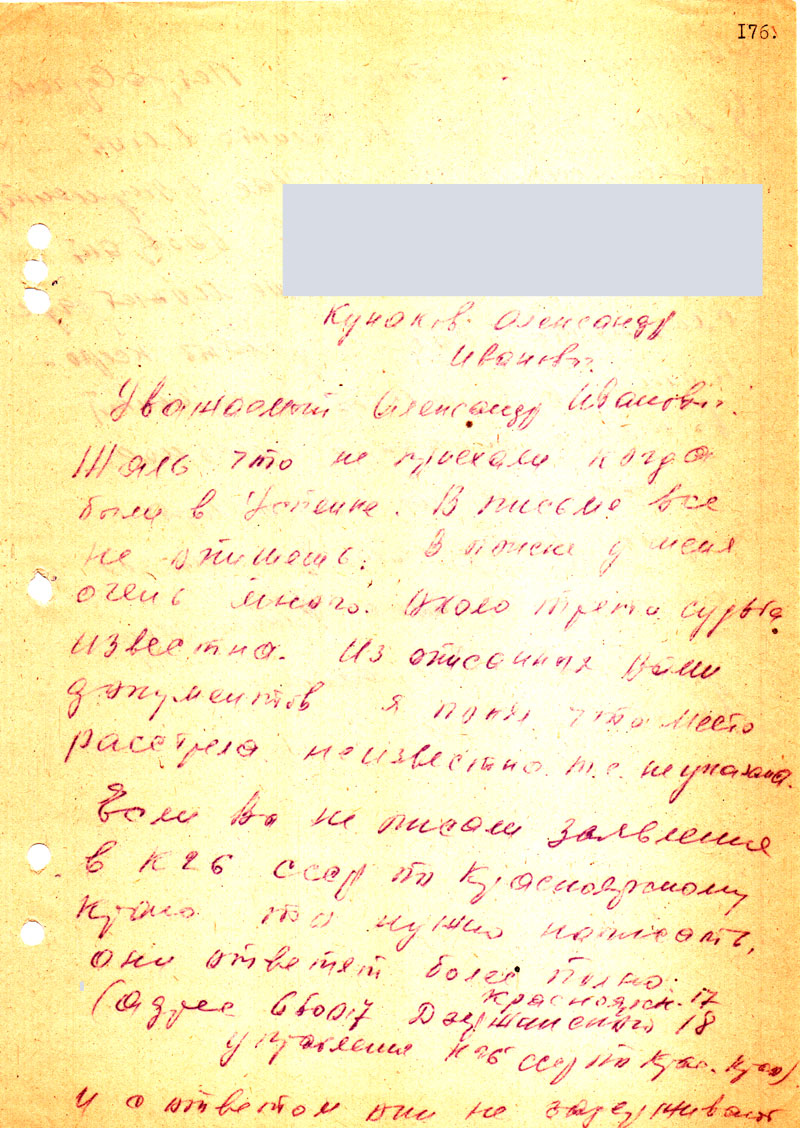 176.
Кунаков Александр
Иванович
Уважаемый Александр Иванович.
Жаль что не приехали когда
были в Успенке. В письме все
не опишешь. В поиске у меня
очень много. Около трети судьба
известна. Из описанных Вами
документов я понял что место
расстрела неизвестно т.е. не указана.
Если Вы не писали заявления
в КГБ ссср по Красноярскому
краю то нужно написать,
они ответят более полно.
(адрес 660017 Красноярск. 17
Дзержинского 18
управления КГБ ссср по Крас. краю)
и с ответом они не задерживают